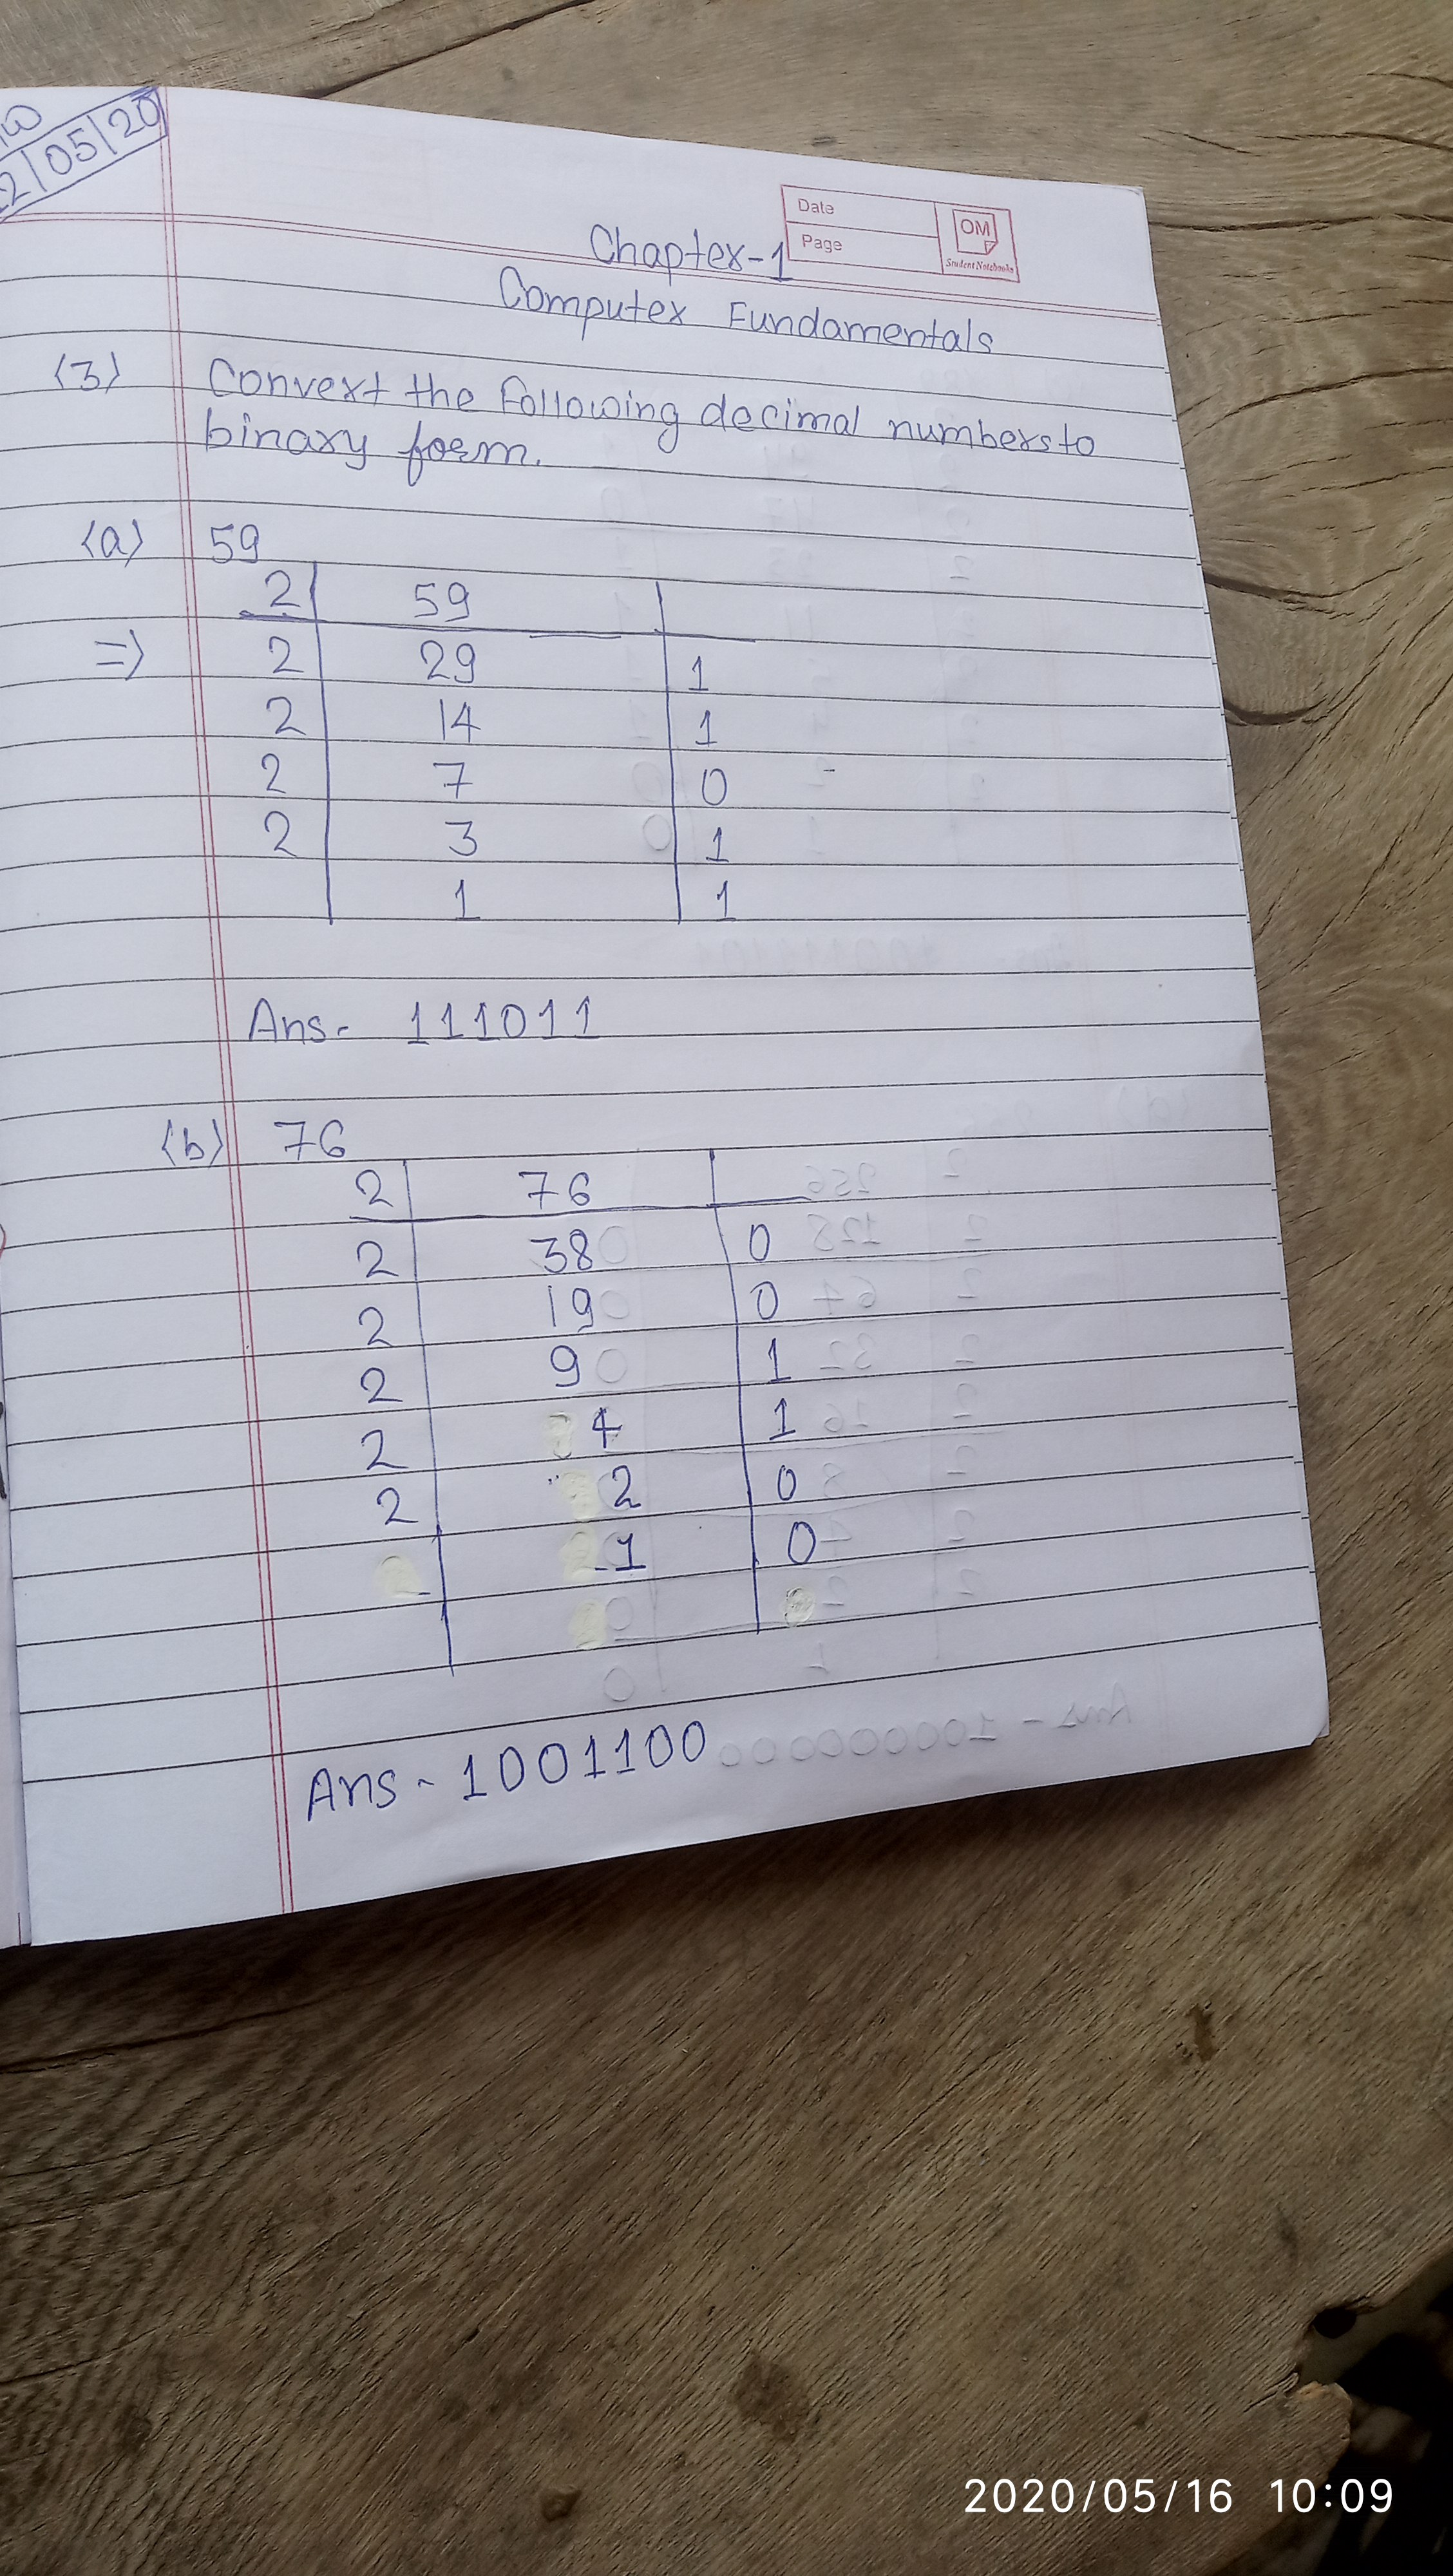 2/05/20
Date
Page
OM
Student Notebooks
Chapter-1
Computer Fundamentals
(3) Convert the Following decimal numbers to
binary form.
(a) 59
2 59
=> 2 29 1
2 14 1
2 7 0
2 3 1
1 1
Ans- 111011
(b) 76
2 76
2 38 0
2 19 0
2 9 1
2 4 1
2 2 0
1 0
Ans - 1001100
2020/05/16 10:09